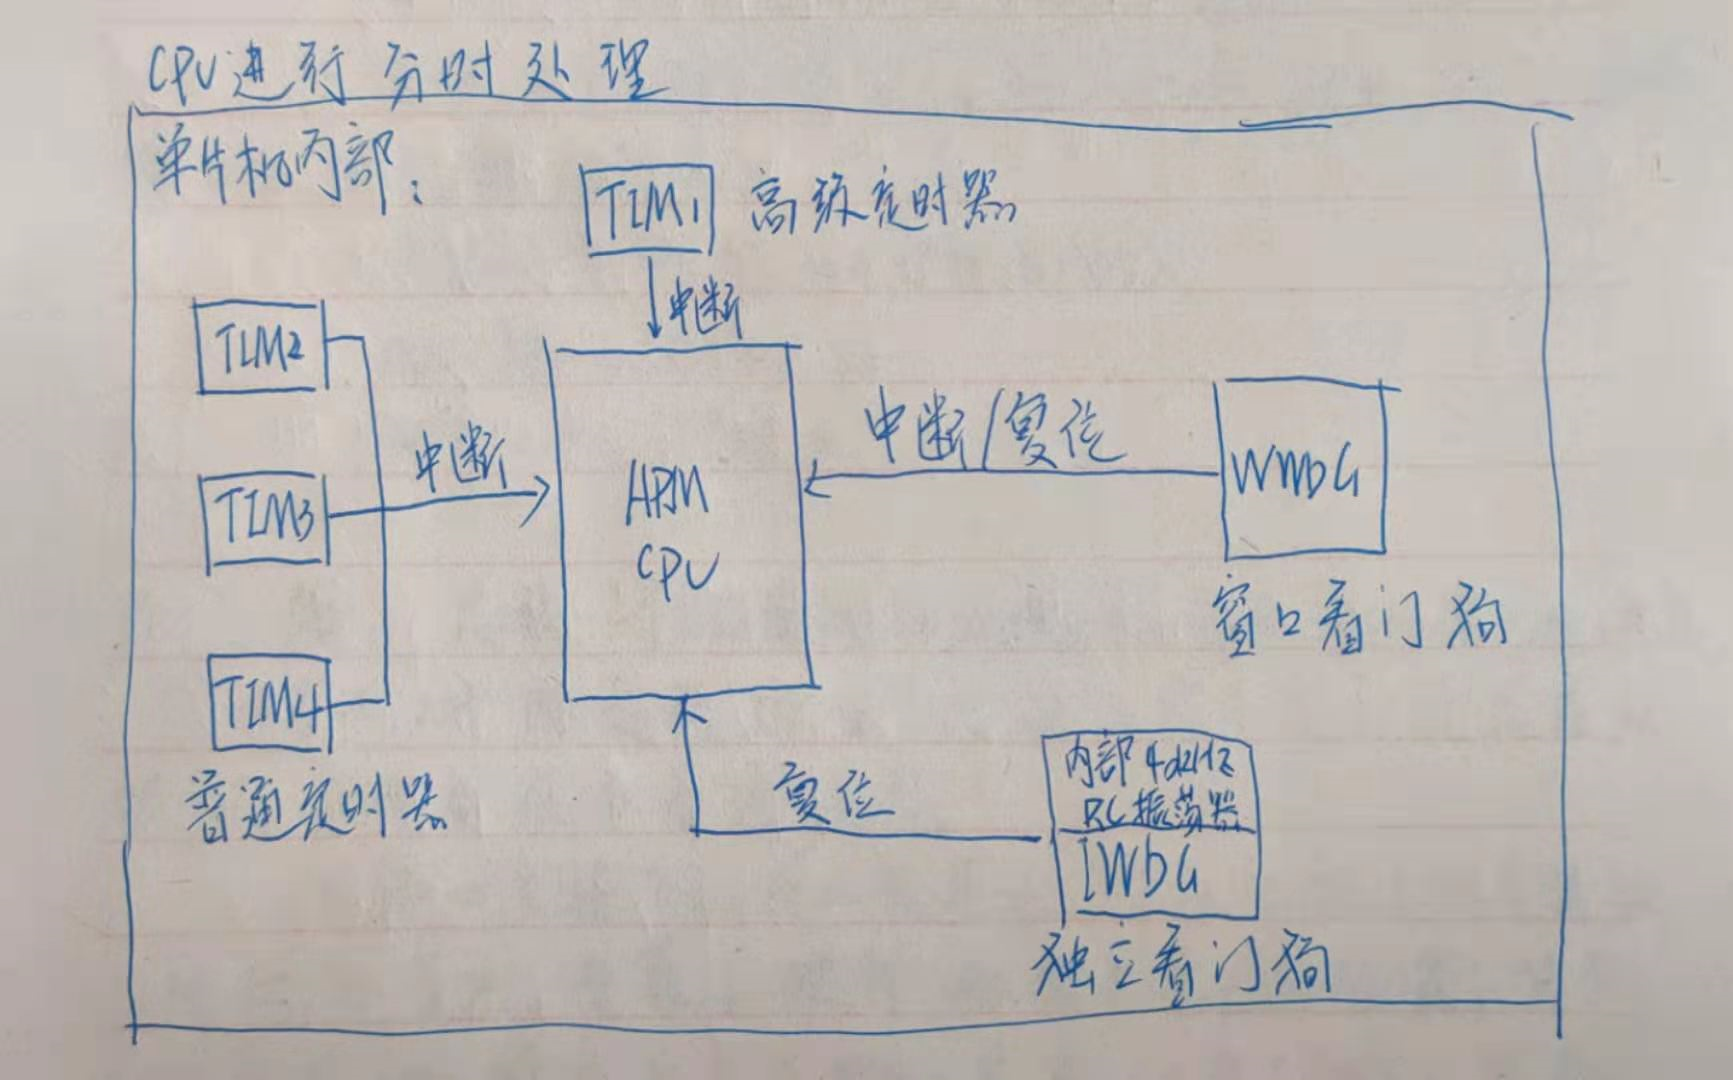 CPU进行分时处理
单片机内部:
TIM1 高级定时器
中断
TIM2
TIM3
TIM4
普通定时器
中断
ARM
CPU
中断/复位
WWDG
窗口看门狗
复位
内部40kHz
RC振荡器
IWDG
独立看门狗